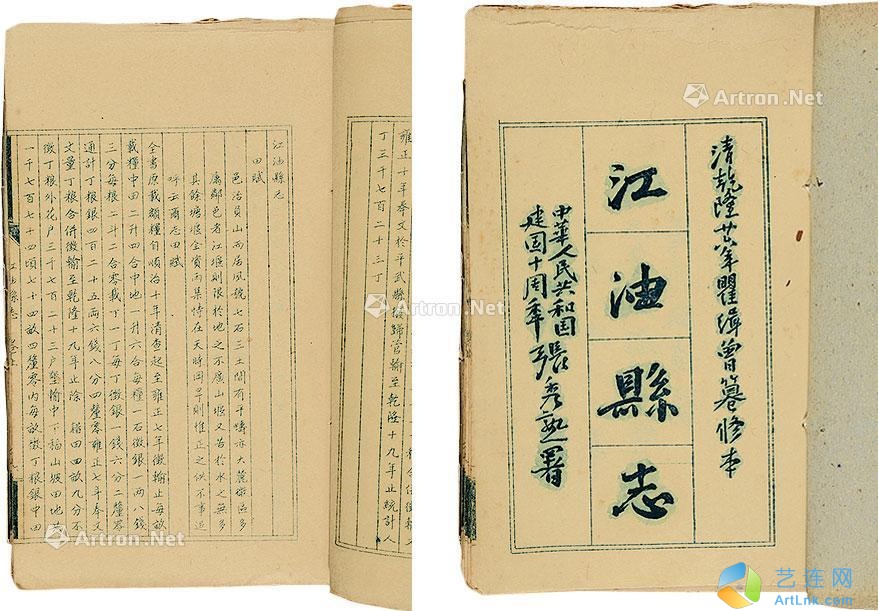 雍正十年奉文於平武縣撥歸管輸至乾隆十九年止統計人
丁三千七百二十三丁
江油縣志
田賦
邑治負山而居風號七石三土間有平疇亦大麓區多
屬鄰邑者江堰則限於地之不廣山堰又苦於水之無多
其餘塘堰全資雨集恃在天時因旱則惟正之供不事追
呼云爾志田賦
全書原載額糧自順治十年清查起至雍正七年徵輸止每畝
載糧中田二升四合中地一升六合每糧一石徵銀一兩八錢
三分每糧二斗二合零載丁一丁每丁徵銀一錢六分二釐零
通計丁糧銀四百二十五兩六錢八分四釐零雍正七年奉文
丈量丁糧合併徵輸至乾隆十九年止除田四畝九分不
徵丁糧外花戶三千七百二十三戶墾輸中下稻山坡田地共
一千七百七十四頃七十四畝四釐零內每畝徵丁糧銀中田
江油縣志
清乾隆廿六年瞿緝曾纂修本
江油縣志
中華人民共和国
建国十周年 張秀熟署
Artron.Net
Artron.Net
Artron.Net
Artron.Net
艺连网
ArtLnk.com